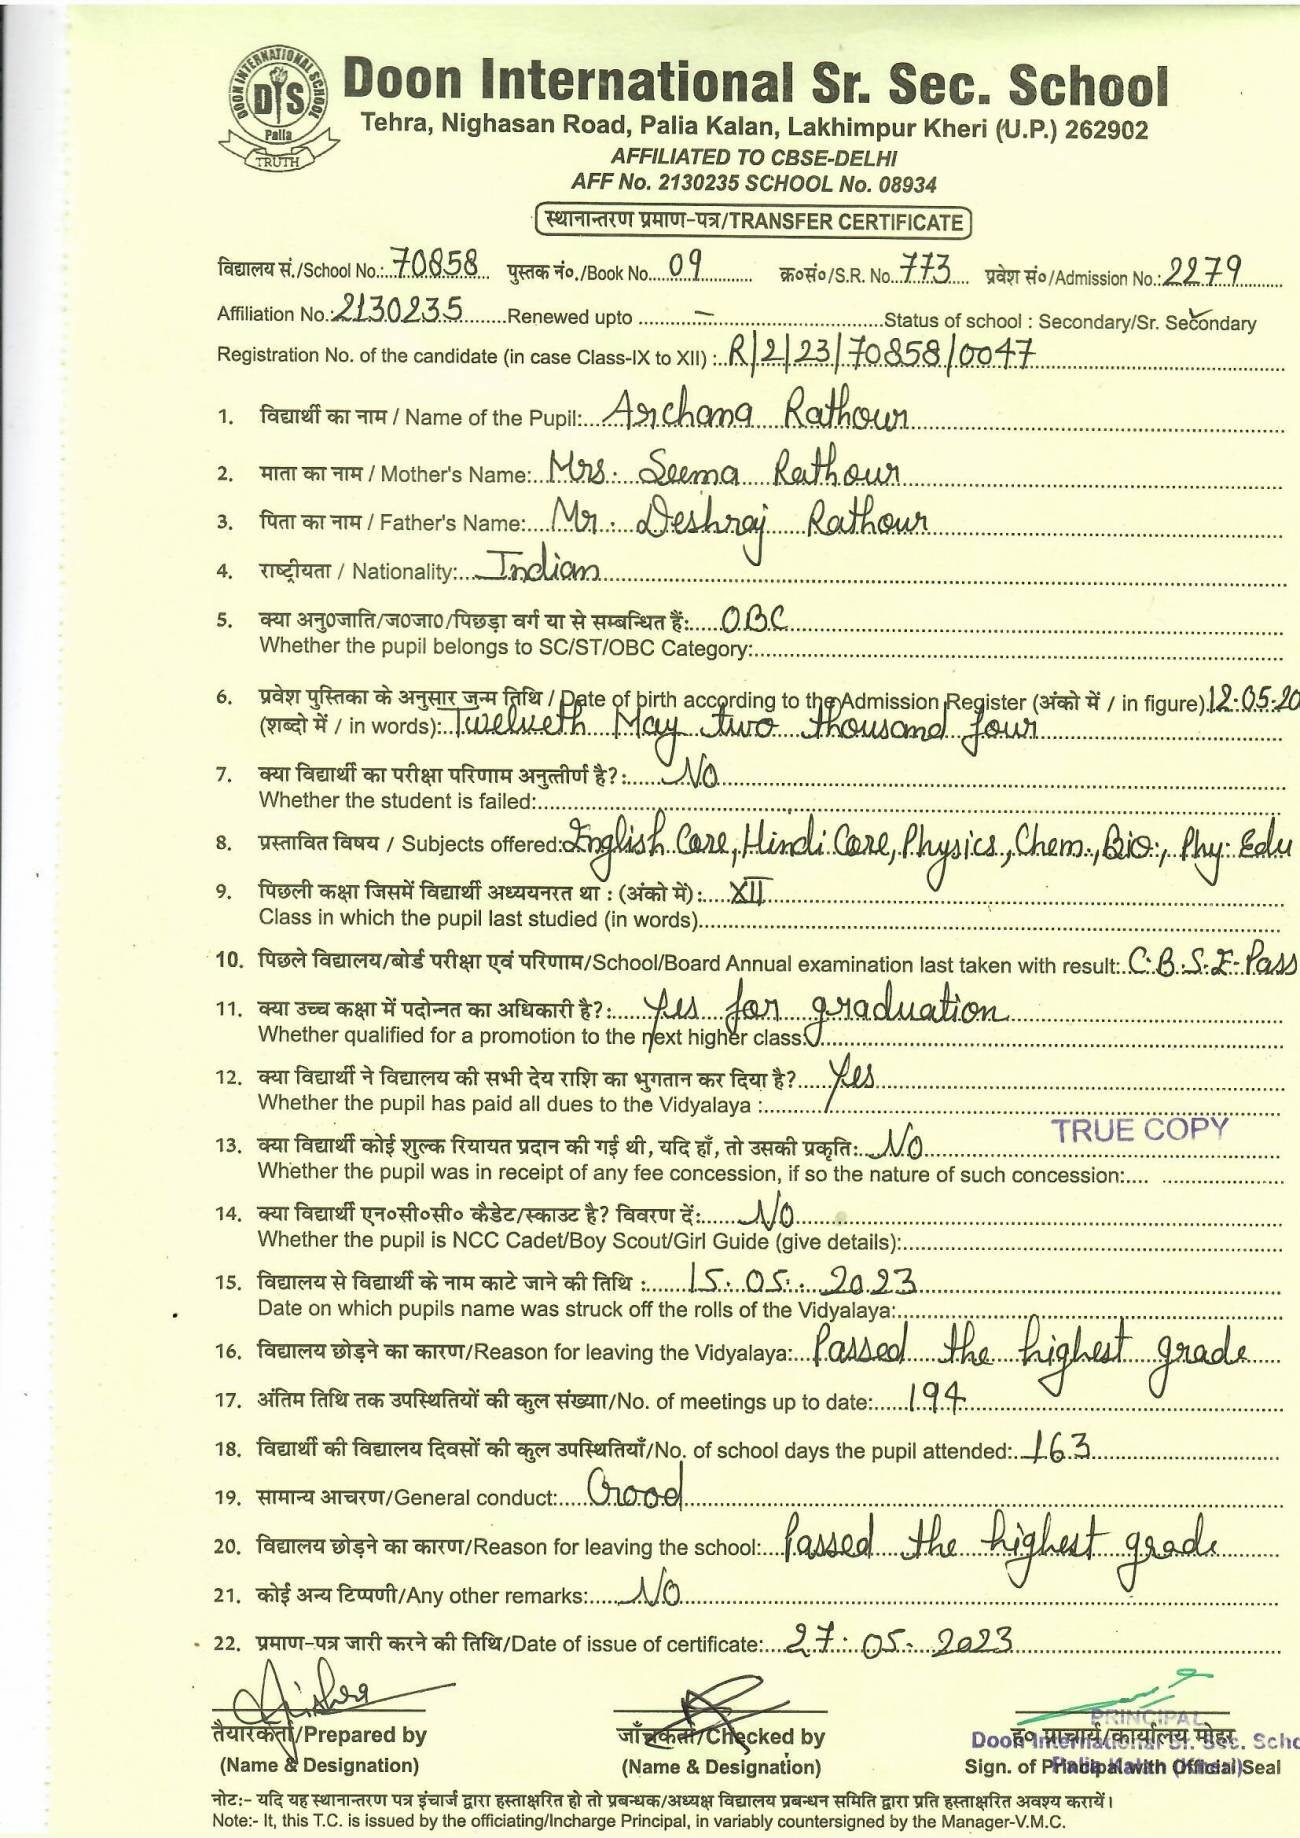 DOON INTERNATIONAL SCHOOL
DIS
Palia
TRUTH
Doon International Sr. Sec. School
Tehra, Nighasan Road, Palia Kalan, Lakhimpur Kheri (U.P.) 262902
AFFILIATED TO CBSE-DELHI
AFF No. 2130235 SCHOOL No. 08934
स्थानान्तरण प्रमाण-पत्र/TRANSFER CERTIFICATE
विद्यालय सं./School No.: 70858 पुस्तक नं०./Book No. 09 क्र०सं०/S.R. No. 773 प्रवेश सं०/Admission No.: 2279
Affiliation No.: 2130235 Renewed upto – Status of school : Secondary/Sr. Secondary
Registration No. of the candidate (in case Class-IX to XII) : R/2/23/70858/0047
1. विद्यार्थी का नाम / Name of the Pupil: Archana Rathour
2. माता का नाम / Mother's Name: Mrs. Seema Rathour
3. पिता का नाम / Father's Name: Mr. Deshraj Rathour
4. राष्ट्रीयता / Nationality: Indian
5. क्या अनु0जाति/ज0जा0/पिछड़ा वर्ग या से सम्बन्धित हैं: OBC
Whether the pupil belongs to SC/ST/OBC Category:
6. प्रवेश पुस्तिका के अनुसार जन्म तिथि / Date of birth according to the Admission Register (अंको में / in figure) 12.05.20
(शब्दो में / in words): Twelveth May two thousand four
7. क्या विद्यार्थी का परीक्षा परिणाम अनुत्तीर्ण है?: No
Whether the student is failed:
8. प्रस्तावित विषय / Subjects offered: English Core, Hindi Core, Physics, Chem., Bio., Phy. Edu
9. पिछली कक्षा जिसमें विद्यार्थी अध्ययनरत था : (अंको में): XII
Class in which the pupil last studied (in words)
10. पिछले विद्यालय/बोर्ड परीक्षा एवं परिणाम/School/Board Annual examination last taken with result: C.B.S.E-Pass
11. क्या उच्च कक्षा में पदोन्नत का अधिकारी है?: Yes for graduation
Whether qualified for a promotion to the next higher class:
12. क्या विद्यार्थी ने विद्यालय की सभी देय राशि का भुगतान कर दिया है? Yes
Whether the pupil has paid all dues to the Vidyalaya :
TRUE COPY
13. क्या विद्यार्थी कोई शुल्क रियायत प्रदान की गई थी, यदि हाँ, तो उसकी प्रकृति: No
Whether the pupil was in receipt of any fee concession, if so the nature of such concession:
14. क्या विद्यार्थी एन०सी०सी० कैडेट/स्काउट है? विवरण दें: No
Whether the pupil is NCC Cadet/Boy Scout/Girl Guide (give details):
15. विद्यालय से विद्यार्थी के नाम काटे जाने की तिथि : 15.05.2023
Date on which pupils name was struck off the rolls of the Vidyalaya:
16. विद्यालय छोड़ने का कारण/Reason for leaving the Vidyalaya: Passed the highest grade
17. अंतिम तिथि तक उपस्थितियों की कुल संख्याा/No. of meetings up to date: 194
18. विद्यार्थी की विद्यालय दिवसों की कुल उपस्थितियाँ/No. of school days the pupil attended: 163
19. सामान्य आचरण/General conduct: Good
20. विद्यालय छोड़ने का कारण/Reason for leaving the school: Passed the highest grade
21. कोई अन्य टिप्पणी/Any other remarks: No
22. प्रमाण-पत्र जारी करने की तिथि/Date of issue of certificate: 27.05.2023
PRINCIPAL
तैयारकर्ता/Prepared by जाँचकर्ता/Checked by ह० प्राचार्य/कार्यालय मोहर
Doon International Sr. Sec. Scho
(Name & Designation) (Name & Designation) Sign. of Principal with Official Seal
Palia Kalan (Kheri)
नोट:- यदि यह स्थानान्तरण पत्र इंचार्ज द्वारा हस्ताक्षरित हो तो प्रबन्धक/अध्यक्ष विद्यालय प्रबन्धन समिति द्वारा प्रति हस्ताक्षरित अवश्य करायें।
Note:- It, this T.C. is issued by the officiating/Incharge Principal, in variably countersigned by the Manager-V.M.C.